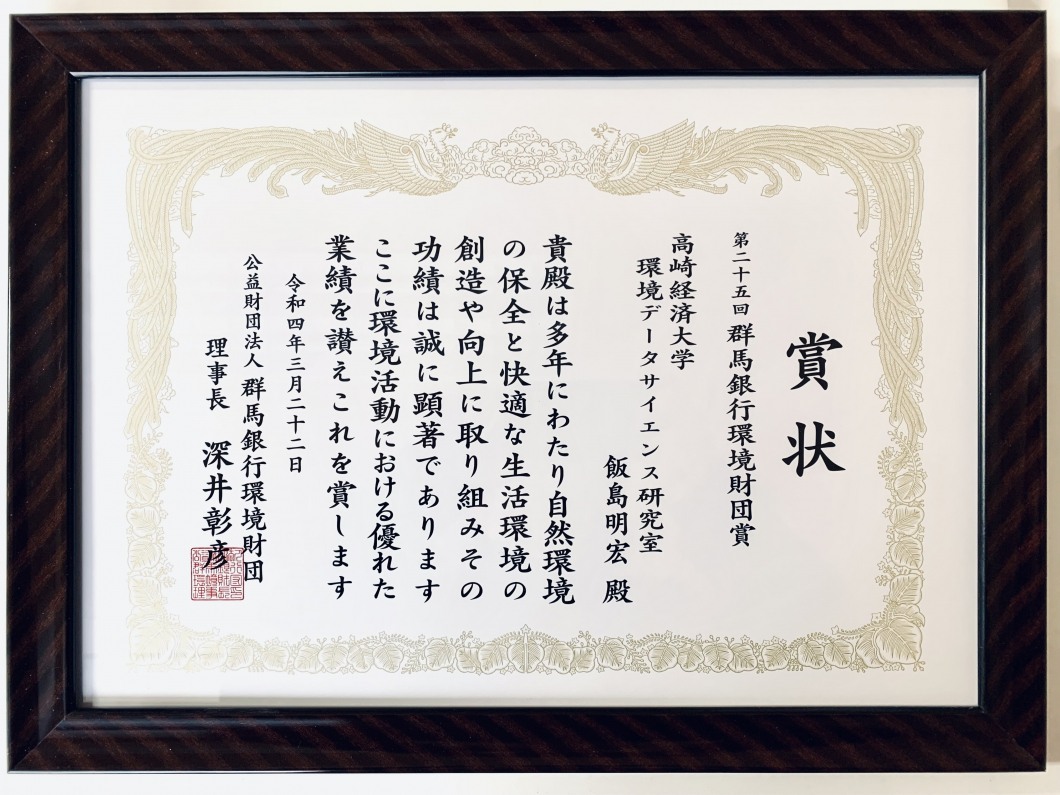 賞状
第二十五回 群馬銀行環境財団賞
高崎経済大学
環境データサイエンス研究室
飯島明宏 殿
貴殿は多年にわたり自然環境
の保全と快適な生活環境の
創造や向上に取り組みその
功績は誠に顕著であります
ここに環境活動における優れた
業績を讃えこれを賞します
令和四年三月二十二日
公益財団法人 群馬銀行環境財団
理事長 深井彰彦